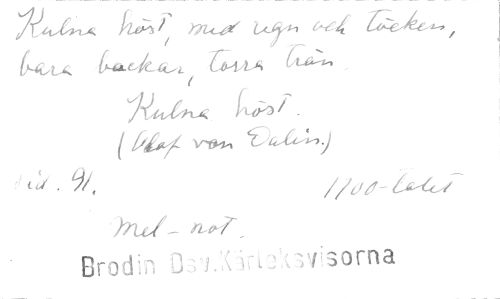 Kulna höst, med regn och töcken,
bara backar, torra trän.
Kulna höst.
(Olof von Dalin.)
sid. 91.
1700-talet
Mel-not.
Brodin Dsv.Kärleksvisorna